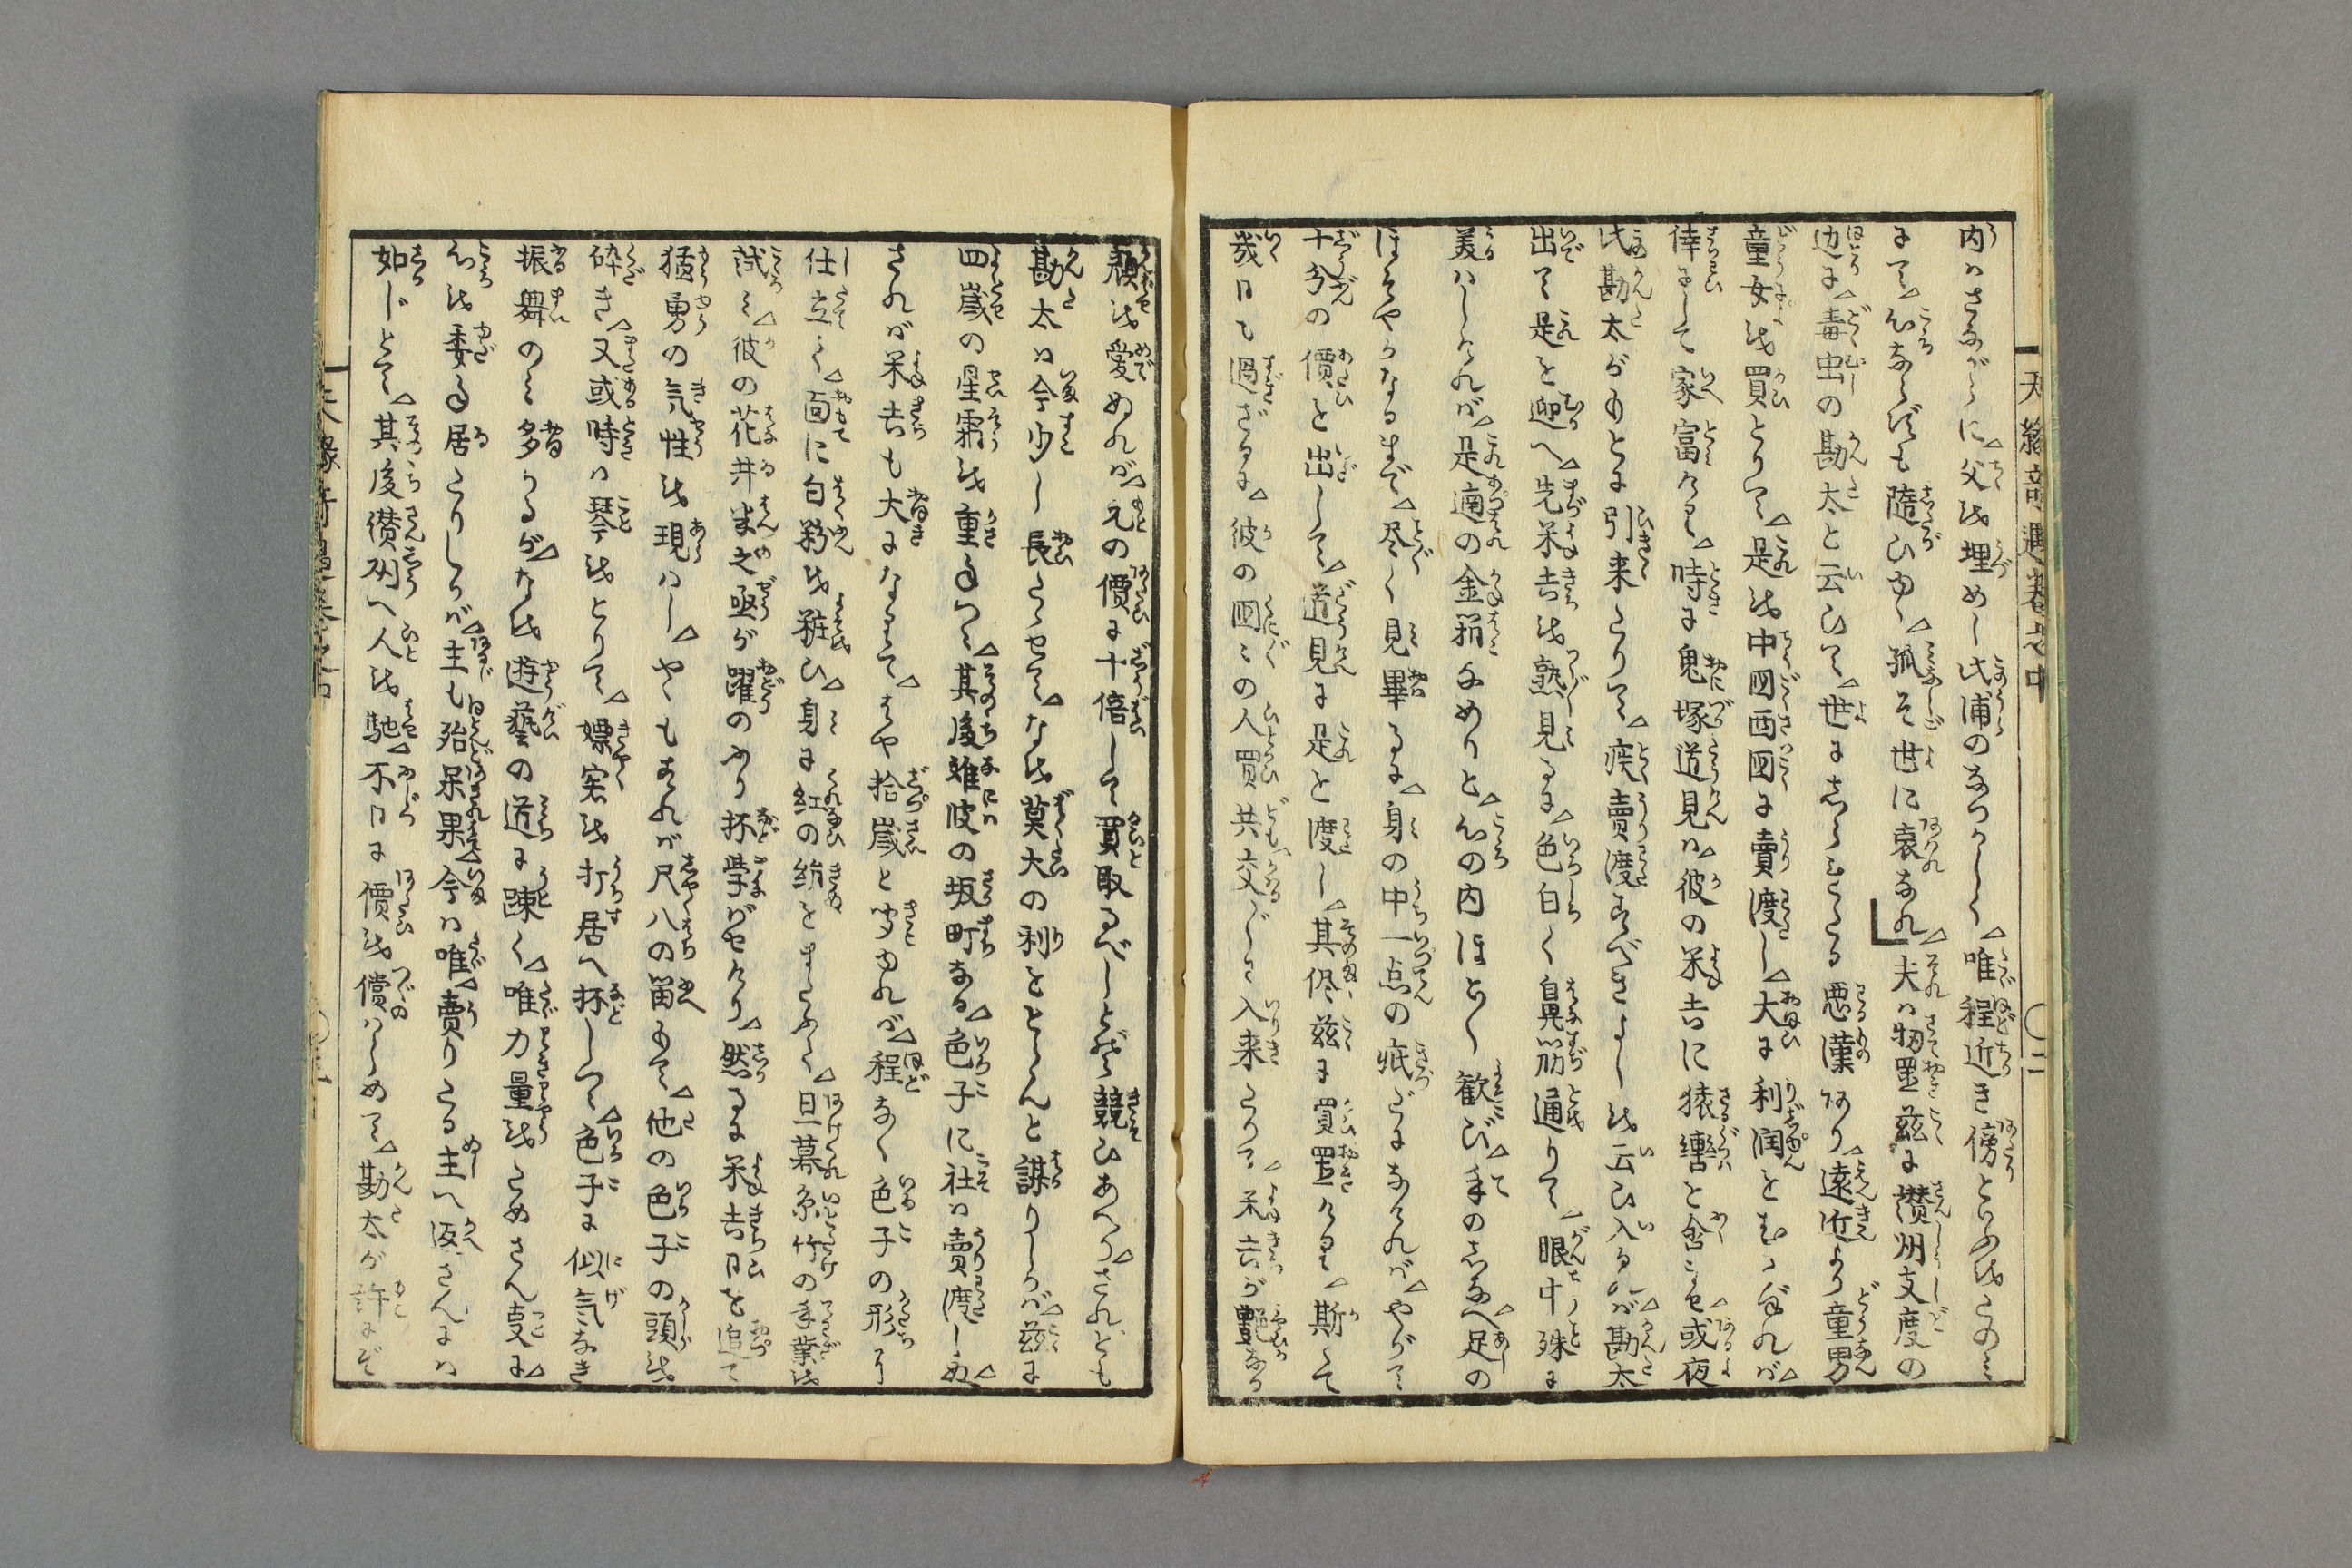 内ハさながらに父を埋めし此浦のなつかしく唯程近き傍といふをたのミ
にて心ならずも随ひゆく孤ぞ世に哀なれ夫ハ扨置茲に讃州支度の
辺に毒虫の勘太と云ひて世にしらミたる悪漢あり遠近より童男
童女を買とりて是を中国西国に賣渡し大に利潤とむさぼれバ
倖にして家富けり時に鬼塚道見ハ彼の米吉に猿轡を含ませ或夜
此勘太がもとに引来たりて疾賣渡すべきよしを云ひ入るれバ勘太
出て是を迎へ先米吉を熟見るに色白く鼻筋通りて眼中殊に
美ハしけれバ是適の金箱なめりと心の内ほとほと歓び手のしなへ足の
ほそやかなるまで尽く見畢るに身の中一点の疵だになけれバやがて
十分の價を出して道見に是を渡し其侭茲に買置けり斯くて
幾日も過ざるに彼の国々の人買共交々に入来たりて米吉が艶なる
顔を愛めれバ元の價に十倍して買取るべしとぞ競ひあへりされども
勘太ハ今少し長たらせてなを莫大の利をとらんと謀りしかバ茲に
四歳の星霜を重ねつゝ其後難波の坂町なる色子に社ハ賣渡しぬ
されバ米吉も大になりてはや拾歳と聞ゆれバ程なく色子の形に
仕立て面に白粉を粧ひ身に紅の絹をまとふて旦暮糸竹の手業を
試ミ彼の花井半之亟が躍のふり抔学ばせけり然るに米吉日を追て
猛勇の気性を現ハしやゝもすれバ尺八の笛にて他の色子の頭を
砕き又或時ハ琴をとりて嫖客を打居へ抔しつゝ色子に似気なき
振舞のミ多かるがなを遊藝の道に踈く唯力量をためさん支に
心を委ね居たりしかバ主も殆呆果今ハ唯賣りたる主へ返さんにハ
如じとて其後讃州へ人を馳不日に價を償ハしめて勘太が許にぞ
天縁奇遇巻之中
〇二